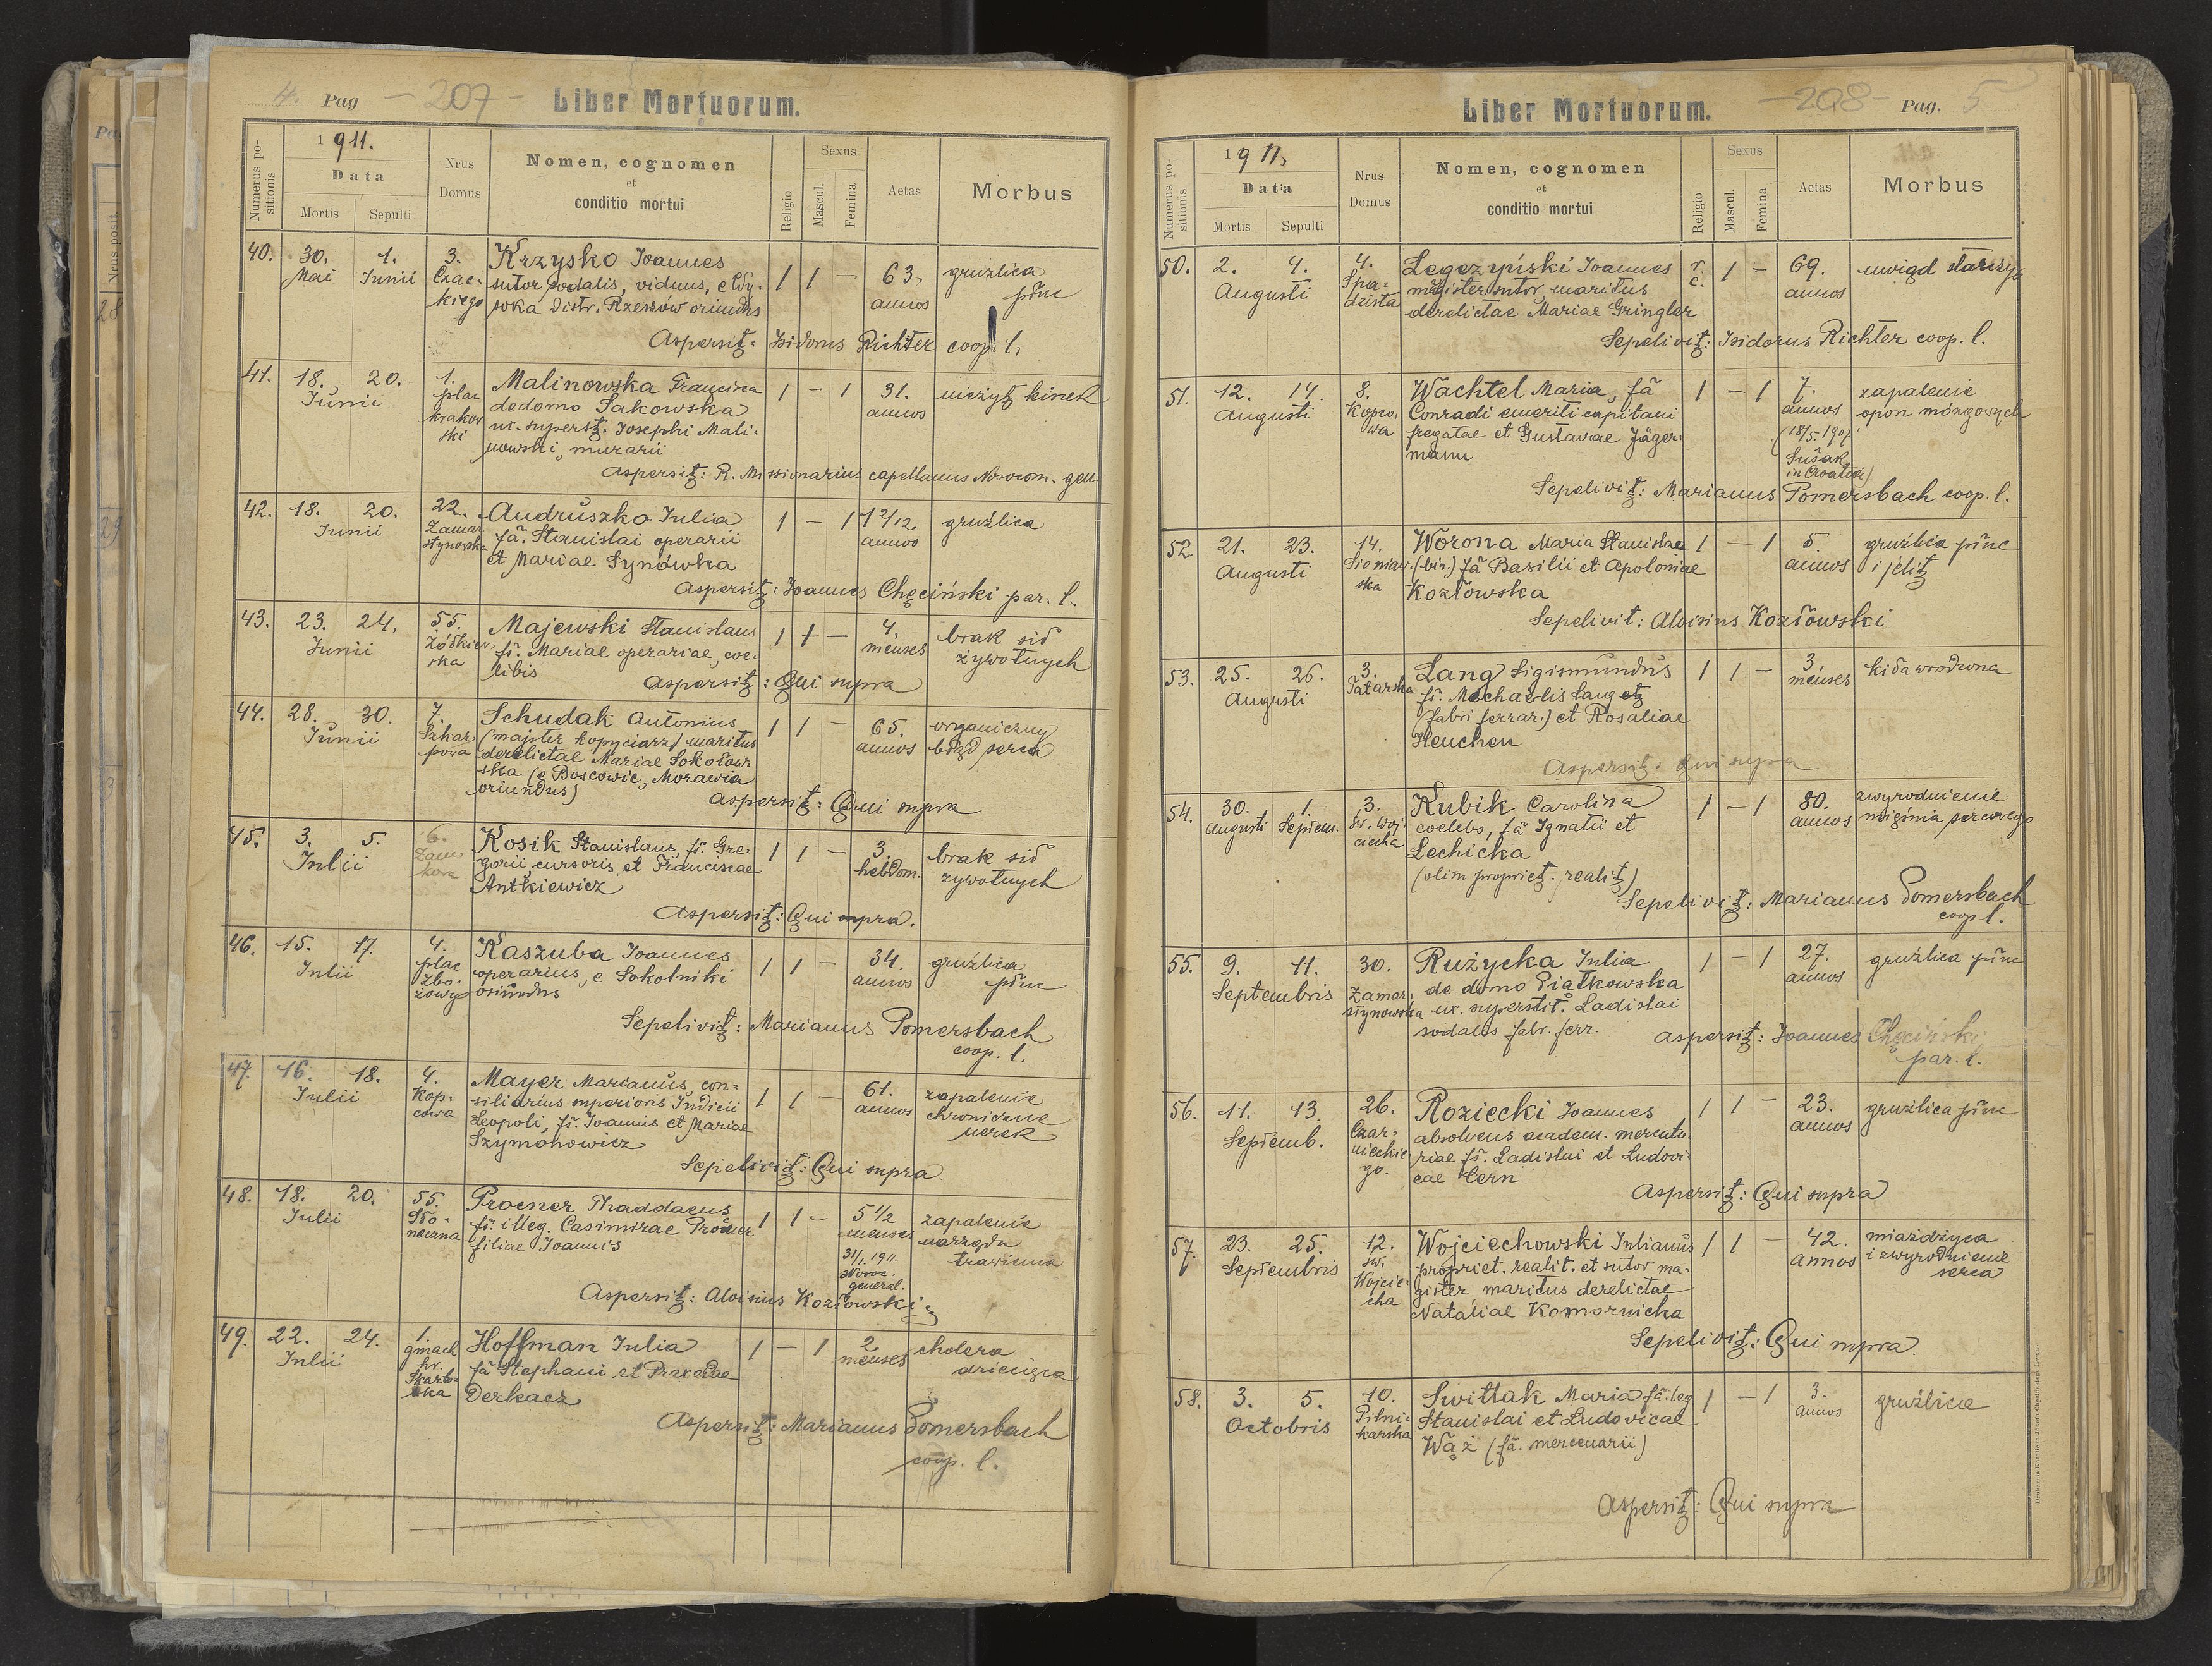 4. Pag - 207 - Liber Mortuorum.
Numerus positionis
1911.
Data
Mortis Sepulti
Nrus Domus
Nomen, cognomen
et
conditio mortui
Religio
Sexus
Mascul. Femina
Aetas
Morbus
40. 30. 1. 3. Krzysko Joannes 1 1 — 63. gruźlica
Mai Junii Czac- sutor sodalis, viduus, e Wy- annos płuc
kiego soka distr. Rzeszów oriundus
Aspersit: Isidorus Richter coop. l.
41. 18. 20. 1. Malinowska Francisca 1 — 1 31. nieżyt kiszek
Junii plac de domo Sakowska annos
Krakow ux. superst. Josephi Mali-
ski nowski, murarii
Aspersit: R. Missionarius capellanus Nosocom. gen.
42. 18. 20. 22. Andruszko Julia 1 — 1 1 2/12 gruźlica
Junii Zamar fa. Stanislai operarii annos
stynowska et Mariae Synówka
Aspersit: Joannes Chęciński par. l.
43. 23. 24. 55. Majewski Stanislaus 1 1 — 4. brak sił
Junii Żółkiew- fs. Mariae operariae, coe- menses żywotnych
ska libis
Aspersit: Qui supra
44. 28. 30. 7. Schudak Antonius 1 1 — 65. organiczny
Junii Szkar (majster kopyciarz) maritus annos błąd serca
powa derelictae Mariae Sokołow-
ska (e Boscowic, Morawia
oriundus)
Aspersit: Qui supra
45. 3. 5. 6. Kosik Stanislaus, fs. Gre- 1 1 — 3. brak sił
Julii Zam- gorii, cursoris, et Franciscae hebdom. żywotnych
kowa Antkiewicz
Aspersit: Qui supra.
46. 15. 17. 4. Kaszuba Joannes 1 1 — 34. gruźlica
Julii plac operarius, e Sokolniki annos płuc
Zbo- oriundus
żowy
Sepelivit: Marianus Pomersbach
coop. l.
47. 16. 18. 4. Mayer Marianus, con- 1 1 — 61. zapalenie
Julii Kop- siliarius superioris Judicii annos chroniczne
cowa Leopoli, fs. Joannis et Mariae nerek
Szymonowicz
Sepelivit: Qui supra
48. 18. 20. 55. Procner Thaddaeus 1 1 — 5 1/2 zapalenie
Julii Sło- fs. illeg. Casimirae Procner menses narządu
neczna filiae Joannis 31/1. 1911. trawienia
Nosoc.
general.
Aspersit: Aloisius Kozłowski
49. 22. 24. 1. Hoffman Julia 1 — 1 2 cholera
Julii gmach fa Stephani et Praxedae menses dziecięca
hr. Derkacz
Skarb-
ka
Aspersit: Marianus Pomersbach
coop. l.
Liber Mortuorum. - 208 - Pag. 5
Numerus positionis
1911.
Data
Mortis Sepulti
Nrus Domus
Nomen, cognomen
et
conditio mortui
Religio
Sexus
Mascul. Femina
Aetas
Morbus
50. 2. 4. 4. Legezyński Joannes r. 1 — 69. uwiąd starczy
Augusti Spa- magister sutor, maritus c. annos
dzista derelictae Mariae Gringler
Sepelivit: Isidorus Richter coop. l.
51. 12. 14. 8. Wachtel Maria, fa 1 — 1 7. zapalenie
Augusti Kopco- Conradi emeriti capitani annos opon mózgowych
wa fregatae et Gustavae Jäger- (18/5. 1904
mann Sušak
in Croatia)
Sepelivit: Marianus Pomersbach coop. l.
52. 21. 23. 14. Worona Maria Stanislaa 1 — 1 5. gruźlica płuc
Augusti Sieniaw- (bin.) fa Basilii et Apoloniae annos i jelit
ska Kozłowska
Sepelivit: Aloisius Kozłowski
53. 25. 26. 3. Lang Sigismundus 1 1 — 3 kiła wrodzona
Augusti Tatarska fs. Michaelis Lang menses
(fabri ferrar.) et Rosaliae
Heuchen
Aspersit: Qui supra
54. 30. 1. 3. Kubik Carolina 1 — 1 80. zwyrodnienie
Augusti Septem. św. Woj- coelebs, fa Ignatii et annos mięśnia sercowego
ciecha Lechicka
(olim propriet. realit)
Sepelivit: Marianus Pomersbach
coop l.
55. 9. 11. 30. Rużycka Julia 1 — 1 27. gruźlica płuc
Septembris Zamar- de domo Piątkowska annos
stynowska ux. superstit. Ladislai
sodalis fabr. ferr.
Aspersit: Joannes Chęciński
par. l.
56. 11. 13. 26. Roziecki Joannes 1 1 — 23. gruźlica płuc
Septemb. Czar- absolvens academ. mercato- annos
nieckie riae fs. Ladislai et Ludovi-
go. cae Cern
Aspersit: Qui supra
57. 23. 25. 12. Wojciechowski Julianus 1 1 — 42. miażdżyca
Septembris św. propriet. realit. et sutor ma- annos i zwyrodnienie
Wojcie- gister, maritus derelictae serca
cha Nataliae Komarnicka
Sepelivit: Qui supra.
58. 3. 5. 10. Switlak Maria fa. leg 1 — 1 3. gruźlica
Octobris Pilni- Stanislai et Ludovicae annos
karska Wąż (fa. mercenarii)
Aspersit: Qui supra